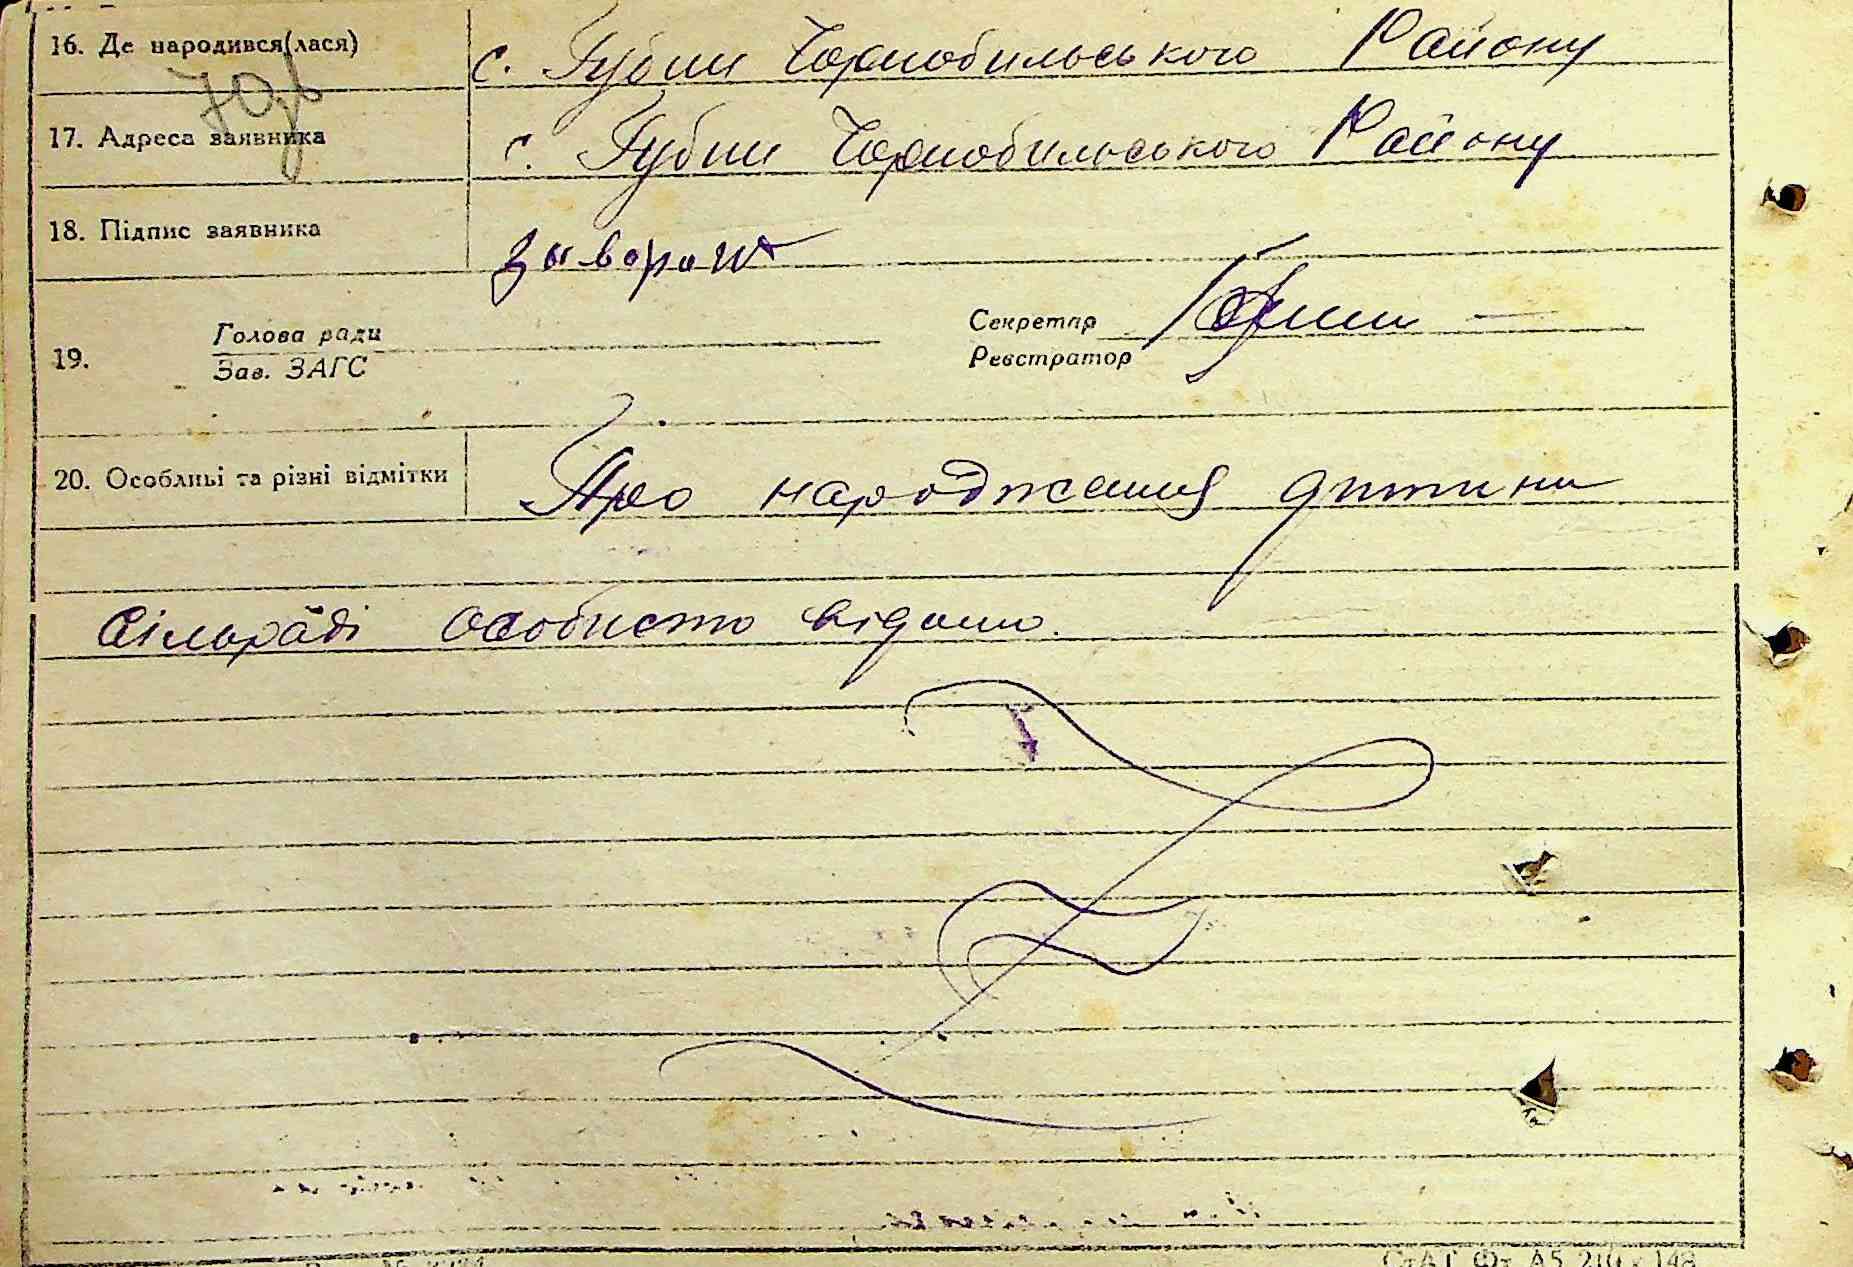 16. Де народився(лася) с. Губин Чорнобильського Району
17. Адреса заявника с. Губин Чорнобильського Району
18. Підпис заявника
19. Голова ради Секретар
Зав. ЗАГС Реєстратор
20. Особливі та різні відмітки Про народження дитини
Сільраді особисто відомо.